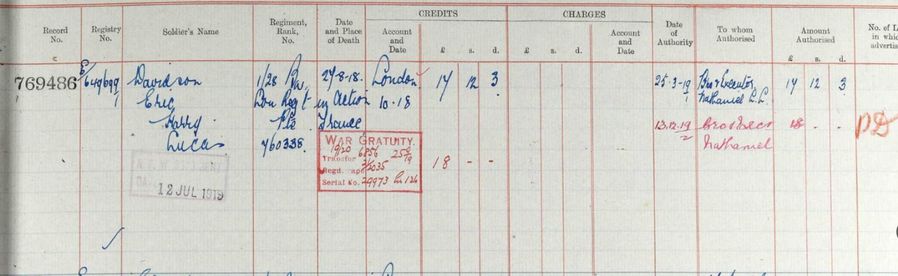 CREDITS CHARGES
Record No. Registry No. Soldier's Name Regiment, Rank, No. Date and Place of Death Account and Date £ s. d. £ s. d. Account and Date Date of Authority To whom Authorised Amount Authorised No. of L in which advertis
c £ s. d.
769486 E/649699 Davidson 1/28 Bn. 27-8-18. London 17 12 3 25-3-19 Bro & Executor, 17 12 3
Eric Lon Regt in Action 10.18 Nathaniel L.L.
Harry Pte France 13.12.19 Bro & Exec 18 - - DD
Lucas 760338 Nathaniel
WAR GRATUITY.
1920 6856 25
Transfer
Regd. 18 - -
Serial No. 29973
12 JUL 1919